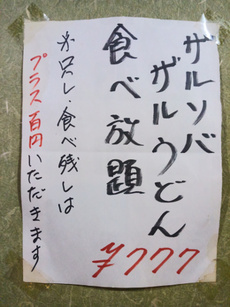 ザルソバ
ザルうどん
食べ放題
¥777
お足し・食べ残しは
プラス百円いただきます